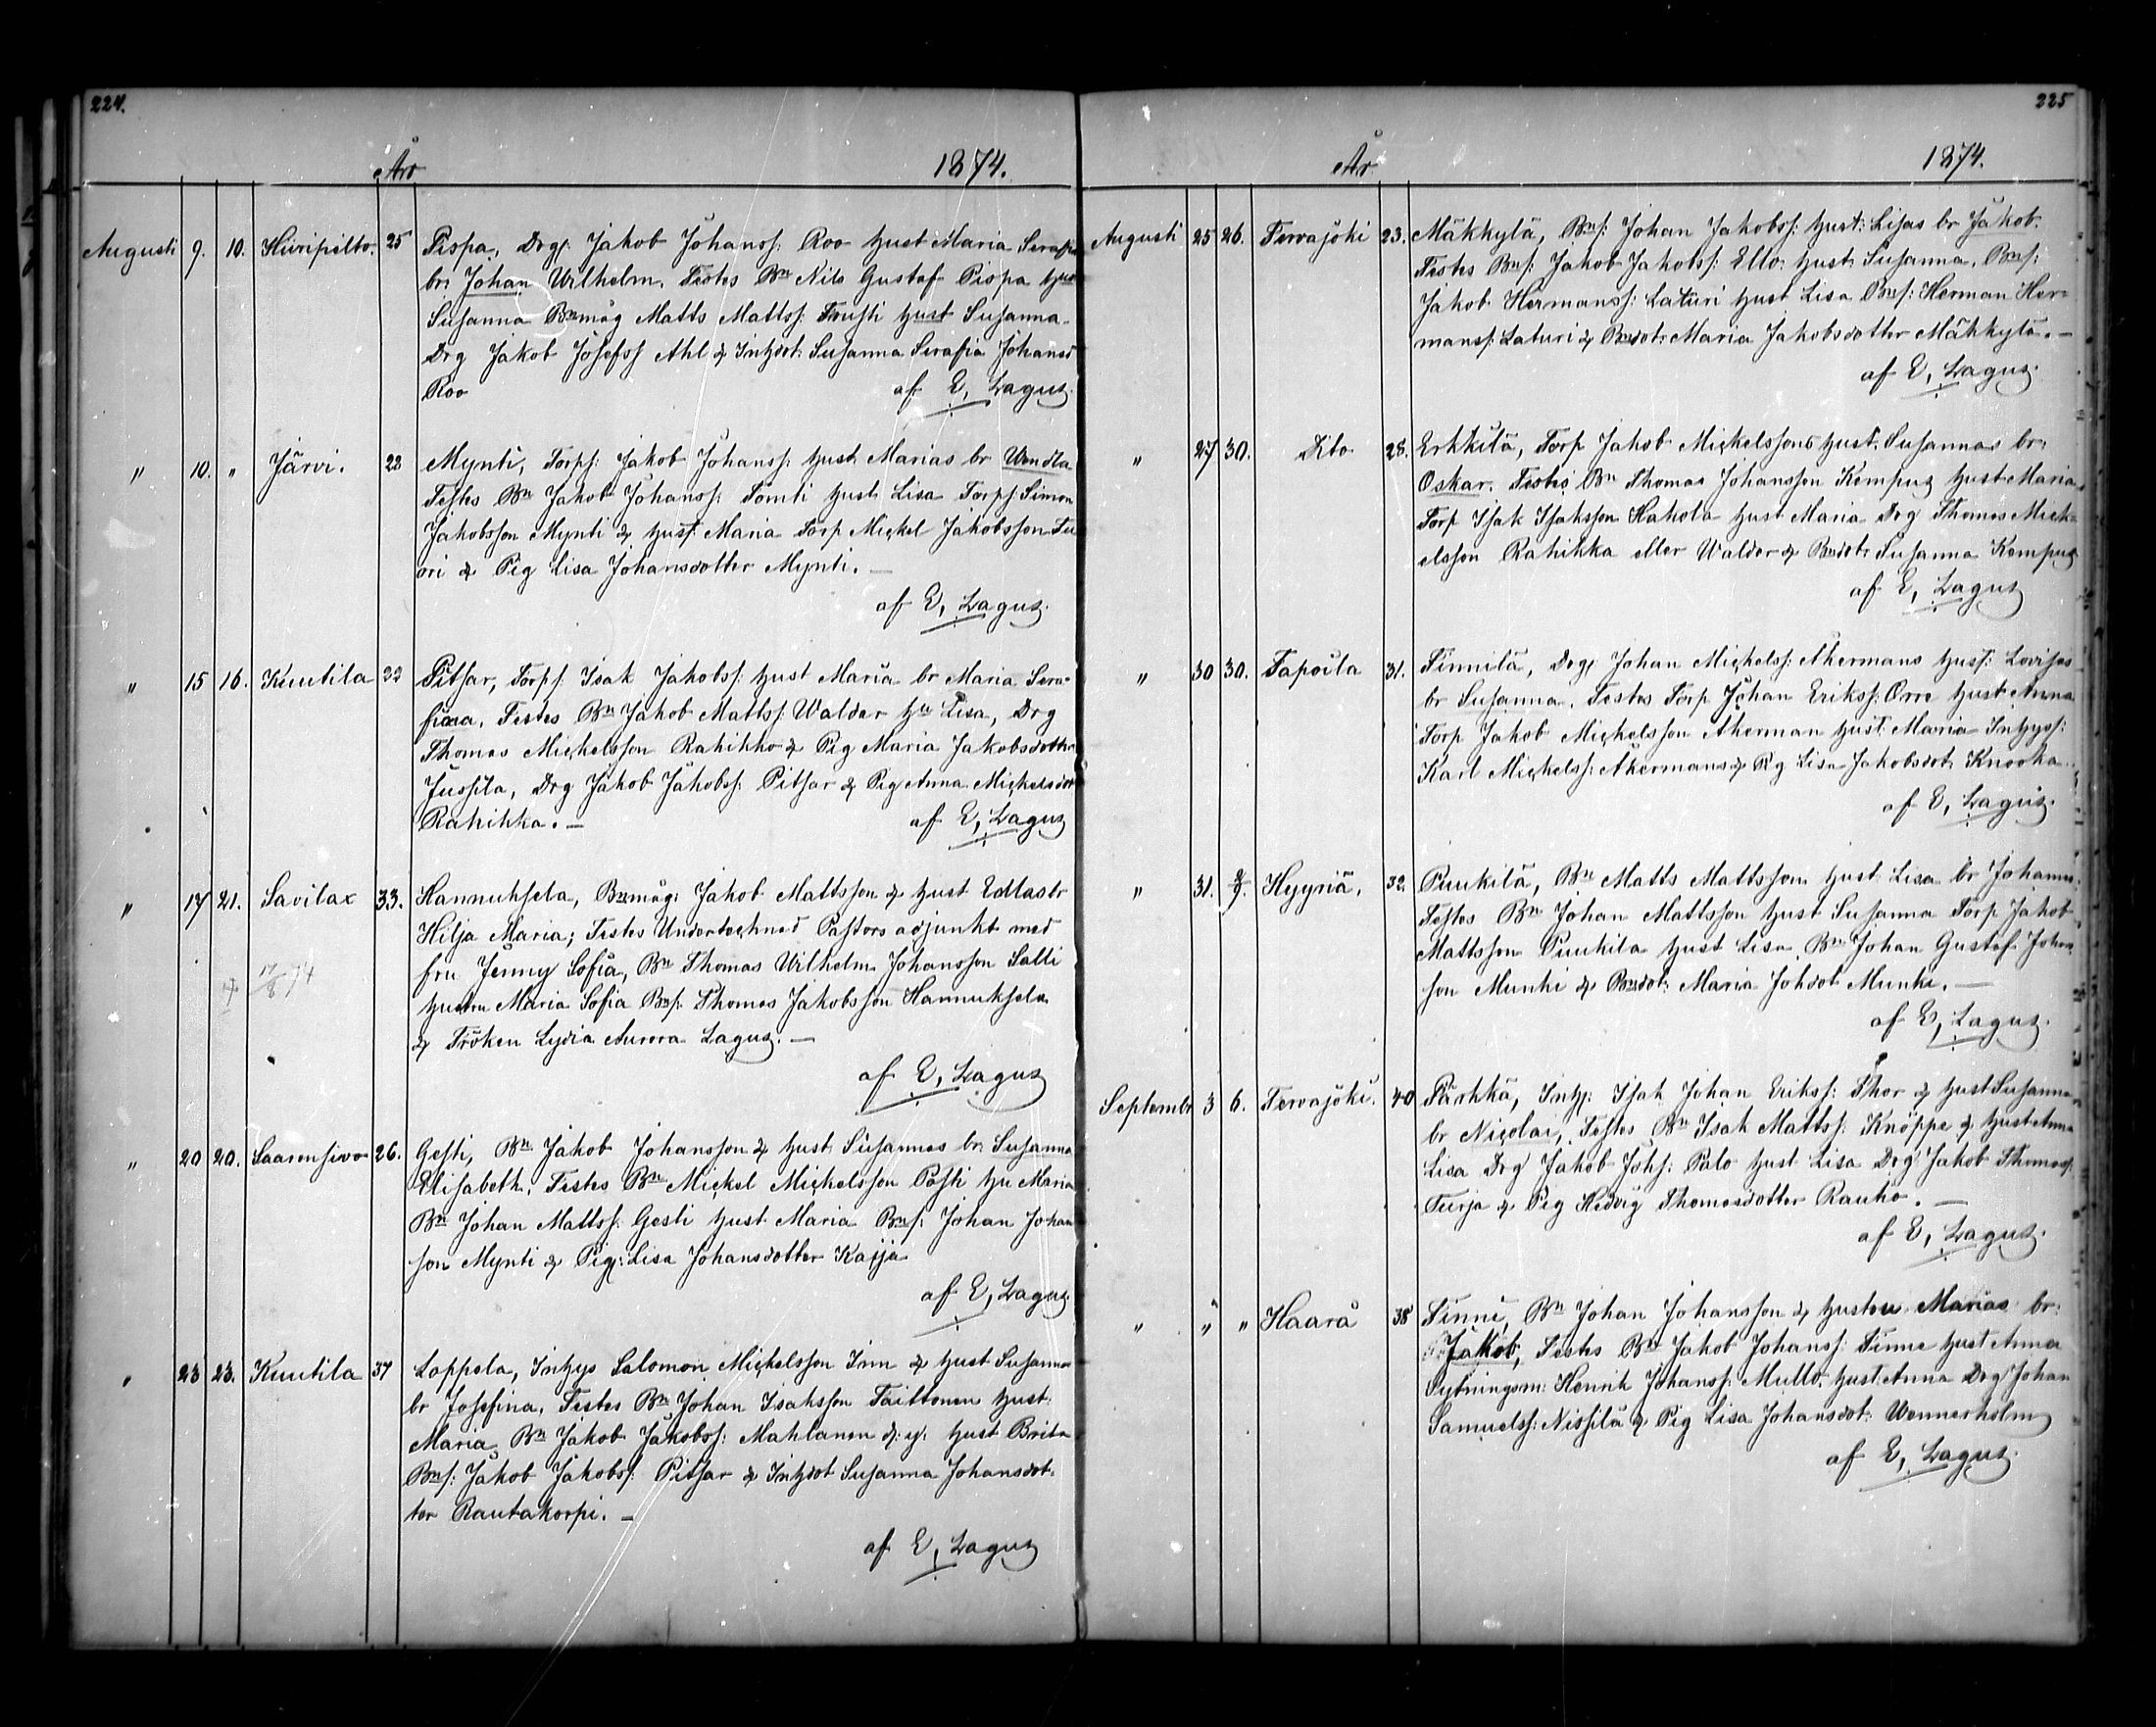 224.
År 1874.
Augusti 9. 10. Hiiripelto. 25 Pispa, Drg: Jakob Johanss: Roo hust Maria Serafia
br: Johan Wilhelm. Testes Bn Nils Gustaf Pispa hust
Susanna Bnmåg Matts Mattss: hust Susanna
Drg Jakob Josefss Ahl & Inhdot: Susanna Serafia Johansd
Roo af E, Lagus.
" 10. " Järvi. 22 Mynti, Torps: Jakob Johanss: hust Marias br Wendla
Testes Bn Jakob Johanss: Tomti hust Lisa Torps: Simon
Jakobsson Mynti & hust Maria Torp Mickel Jakobsson Su
ori & Pig Lisa Johansdotter Mynti. —
af E, Lagus.
" 15 16. Kuutila 22 Pitsar, Torps: Isak Jakobss: hust Maria br Maria Sera-
fina. Testes Bn Jakob Mattss: Waldar hu Lisa, Drg
Thomas Mickelsson Rahikka & Pig Maria Jakobsdotter
Jussila, Drg Jakob Jakobss: Pitsar & Pig Anna Mickelsdot
Rahikka. — af E, Lagus
" 17 21. Savilax 33. Hannuksela, Bnmåg: Jakob Mattsson & hust Edlas br
Hilja Maria; Testes Undertecknad Pastors adjunkt med
fru Jenny Sofia, Bn Thomas Wilhelm Johansson Salli
hustru Maria Sofia Bns: Thomas Jakobsson Hannuksela
& Fröken Lydia Aurora Lagus. —
† 17/8 74
af E, Lagus
" 20 20. Saarensivo 26. Gesti, Bn Jakob Johansson & hust Susannas br: Susanna
Elisabeth. Testes Bn Mickel Mickelsson Pasti hu Maria
Bn Johan Mattss: Gesti hust Maria Bns: Johan Johan
son Mynti & Pig: Lisa Johansdotter Kaija
af E, Lagus
" 23 23. Kuutila 37 Loppela, Inhys Salomon Mickelsson Inn & hust Susanna
br Josefina, Testes Bn Johan Isaksson Taittonen hust
Maria Bn Jakob Jakobss: Mahlanen d: y. hust Brita
Bns: Jakob Jakobss: Pitsar & Inhdot Susanna Johansdot-
ter Rautakorpi. —
af E, Lagus
225
År 1874.
Augusti 25 26. Tervajoki 23. Mäkkylä, Bns: Johan Jakobss: hust: Lisas br Jakob.
Testes Bns: Jakob Jakobss: Ello: hust: Susanna. Bns:
Jakob Hermanss: Laturi hust Lisa Bns: Herman Her-
manss: Laturi & Bndot: Maria Jakobsdotter Mäkkylä. —
af E, Lagus.
" 27 30. Dito 28. Erkkilä, Torp Jakob Mickelssons hust. Susannas br:
Oskar. Testes Bn Thomas Johansson Kempus hust Maria
Torp Isak Isaksson Hakola hust Maria Drg Thomas Mick-
elsson Rahikka eller Waldar & Bndotr Susanna Kempus
af E, Lagus
" 30 30. Tapoila 31. Tinnilä, Drg: Johan Mickelss: Åkermans hust: Lovisas
br Susanna. Testes Torp Johan Erikss: Orre hust Anna
Torp Jakob Mickelsson Åkerman hust: Maria Inhyss:
Karl Mickelss: Åkermans & Pig Lisa Jakobsdot Knooka.
af E, Lagus.
" 31. 2/9. Hyyriä. 32. Puukilä, Bn Matts Mattsson hust Lisa br Johanna.
Testes Bn Johan Mattsson hust Susanna Torp Jakob
Mattsson Puukila hust Lisa Bn Johan Gustaf Johan
son Munki & Bndot: Maria Johdot Munki. —
af E, Lagus.
Septembr 3 6. Tervajoki. 40 Pärkkä, Inhs: Isak Johan Erikss: Thor & hust Susanna
br Nicolai, Testes Bn Isak Mattss: Knöppe & hust Anna
Lisa Drg Jakob Johs: Palo hust Lisa Drg Jakob Thomass
Turja & Pig Hedvig Thomasdotter Rauho. —
af E, Lagus.
" " " Haarå 38 Finni, Bn Johan Johansson & hustru Marias br:
Jakob, Testes Bn Jakob Johanss: Finne hust Anna
Sytningsm: Henrik Johanss: Mullo. hust: Anna Drg Johan
Samuelss: Nissilä & Pig Lisa Johansdot: Wennerholm
af E, Lagus.